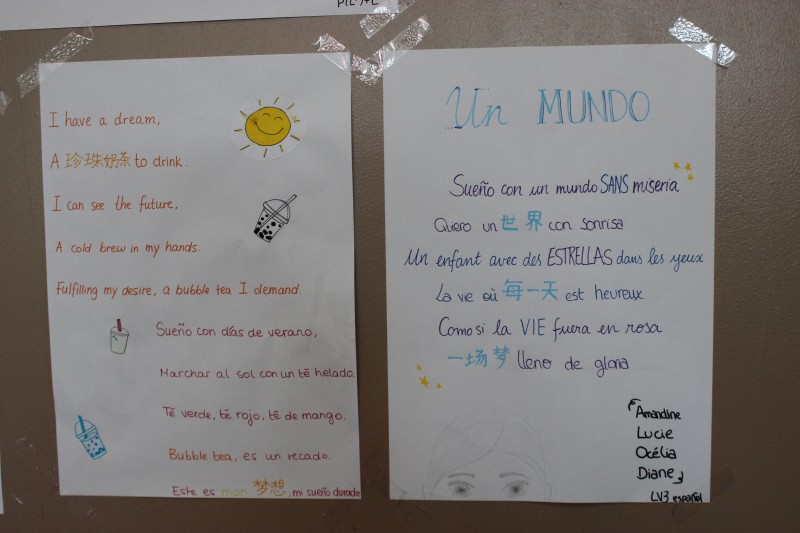 I have a dream,
A 珍珠奶茶 to drink.
I can see the future,
A cold brew in my hands.
Fulfilling my desire, a bubble tea I demand.
Sueño con días de verano,
Marchar al sol con un té helado.
Té verde, té rojo, té de mango.
Bubble tea, es un recado.
Este es mon 梦想, mi sueño dorado
Un MUNDO
Sueño con un mundo SANS miseria
Quiero un 世界 con sonrisa
Un enfant avec des ESTRELLAS dans les yeux
La vie où 每一天 est heureux
Como si la VIE fuera en rosa
一场梦 lleno de gloria
Amandine
Lucie
Océlia
Diane
LV3 español